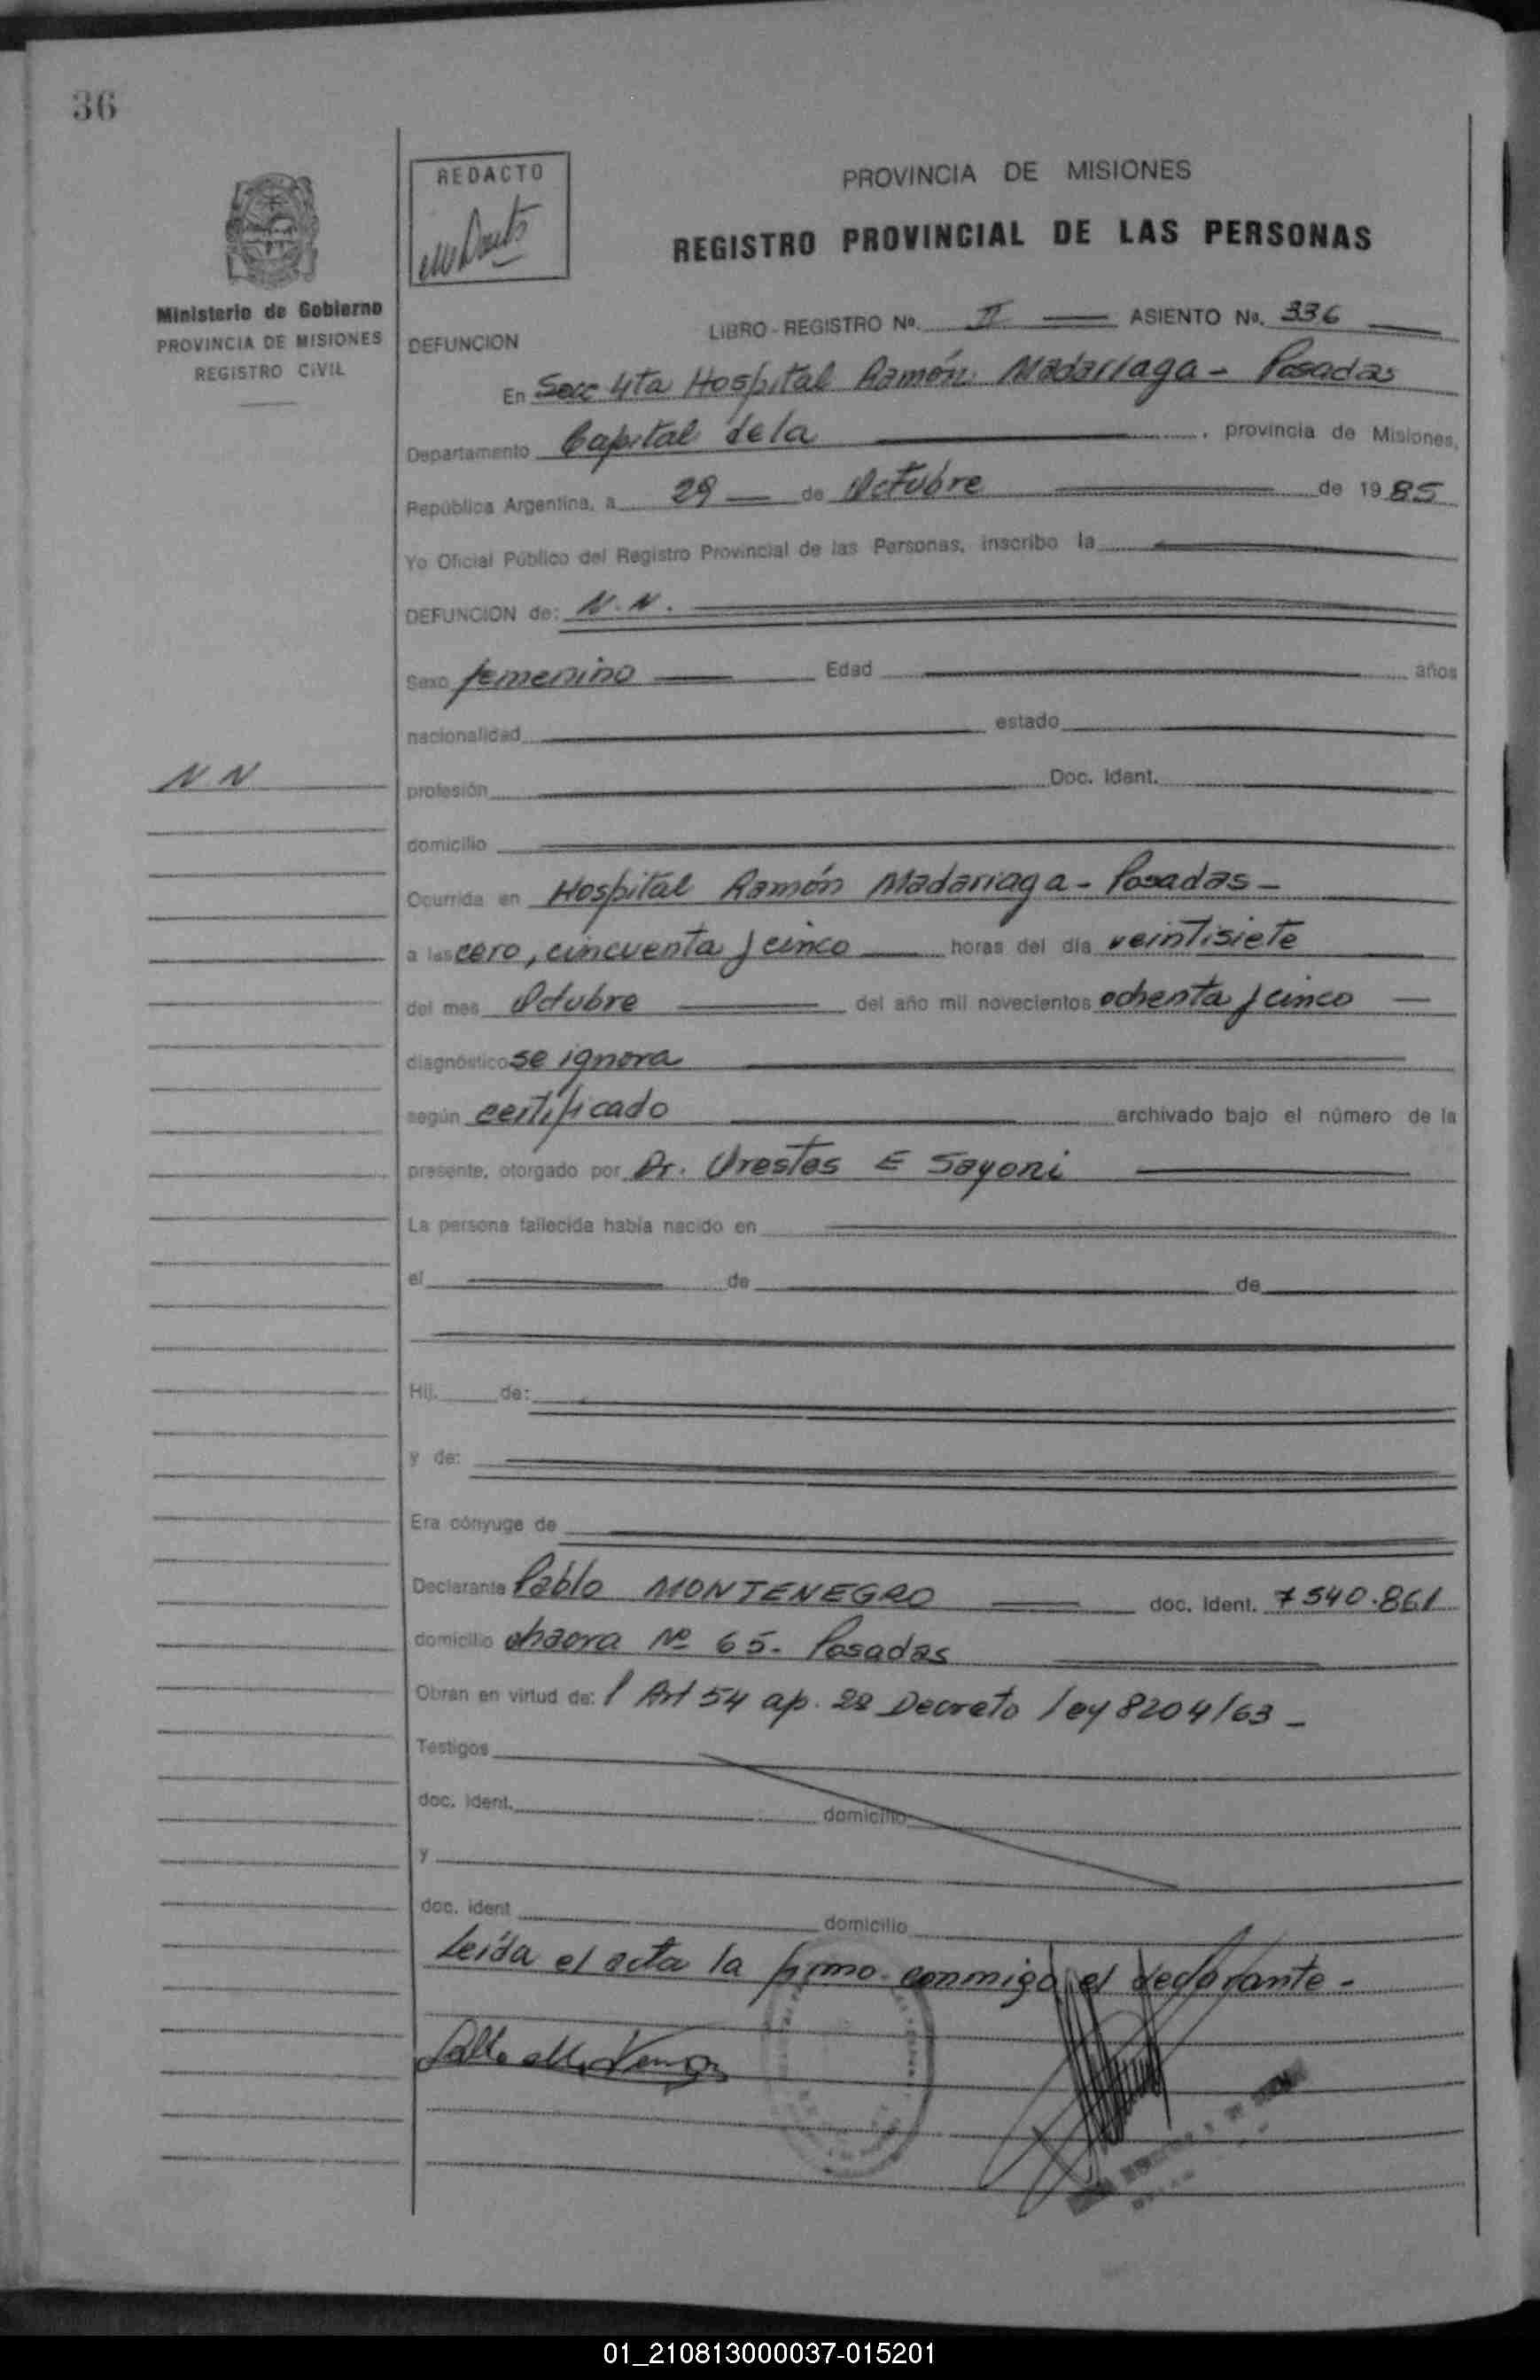 36
REDACTO
PROVINCIA DE MISIONES
REGISTRO PROVINCIAL DE LAS PERSONAS
Ministerio de Gobierno
PROVINCIA DE MISIONES
REGISTRO CIVIL
LIBRO - REGISTRO Nº. II ASIENTO No. 336
DEFUNCION
En Secc 4ta Hospital Ramón Madariaga - Posadas
Departamento Capital de la , provincia de Misiones,
República Argentina, a 29 de Octubre de 1985
Yo Oficial Público del Registro Provincial de las Personas, inscribo la
DEFUNCION de: N.N.
Sexo femenino Edad años
nacionalidad estado
N.N
profesión Doc. Ident.
domicilio
Ocurrida en Hospital Ramón Madariaga - Posadas -
a las cero, cincuenta y cinco horas del día veintisiete
del mes Octubre del año mil novecientos ochenta y cinco
diagnóstico se ignora
según certificado archivado bajo el número de la
presente, otorgado por Dr. Orestes E Sayoni
La persona fallecida había nacido en
el de de
Hij. de:
y de:
Era cónyuge de
Declarante Pablo MONTENEGRO doc. ident. 7540.861
domicilio chacra Nº 65. Posadas
Obran en virtud de: l Art 54 ap. 2º Decreto ley 8204/63 -
Testigos
doc. ident. domicilio
y
doc. ident domicilio
Leída el acta la firmo conmigo el declarante -
01_210813000037-015201